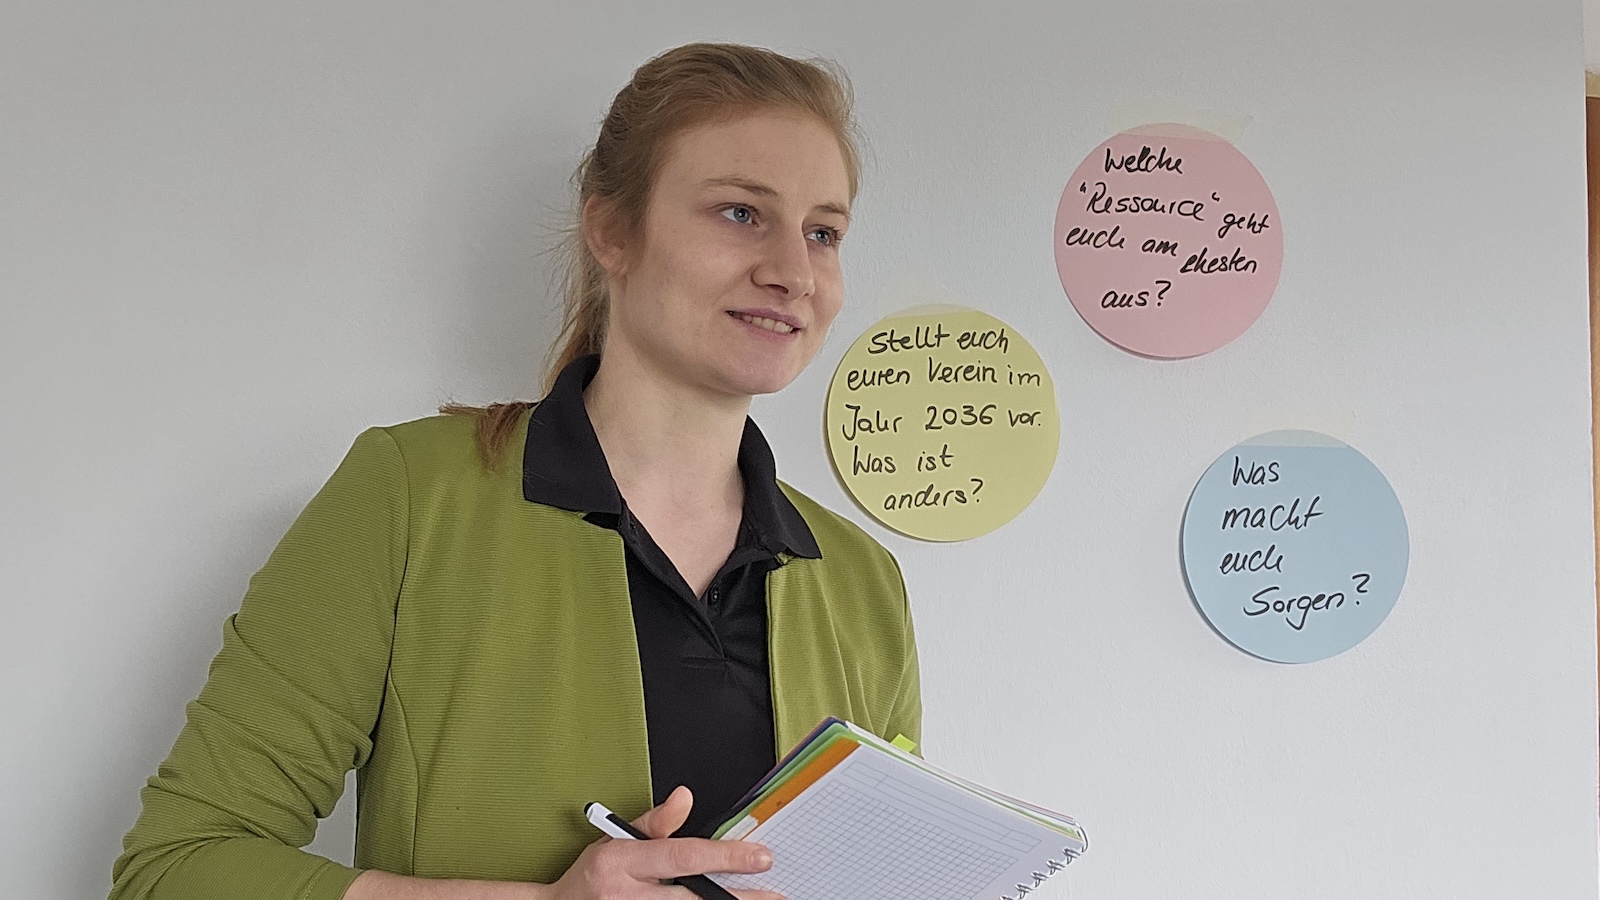 Welche
"Ressource" geht
euch am ehesten
aus?
Stellt euch
euren Verein im
Jahr 2036 vor.
Was ist
anders?
Was
macht
euch
Sorgen?